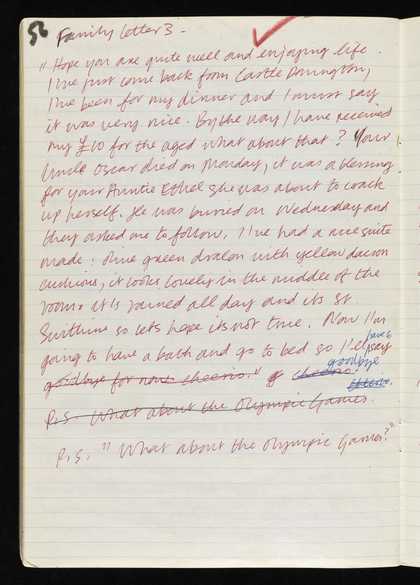 56 Family Letter 3 –
"Hope you are quite well and enjoying life.
I've just come back from Castle Donington,
I've been for my dinner and I must say
it was very nice. By the way I have received
my £10 for the aged what about that? Your
Uncle Oscar died on Monday, it was a blessing
for your Auntie Ethel she was about to crack
up herself. He was buried on Wednesday and
they asked me to follow. I've had a nice suite
made: olive green dralon with yellow dacron
cushions, it looks lovely in the middle of the
room. It's rained all day and its St.
Swithins so lets hope its not true. Now I'm
going to have a bath and go to bed so I'll say
goodbye for now cheerio."
goodbye
cheerio.
P.S. What about the Olympic Games.
P.S. "What about the Olympic Games?"